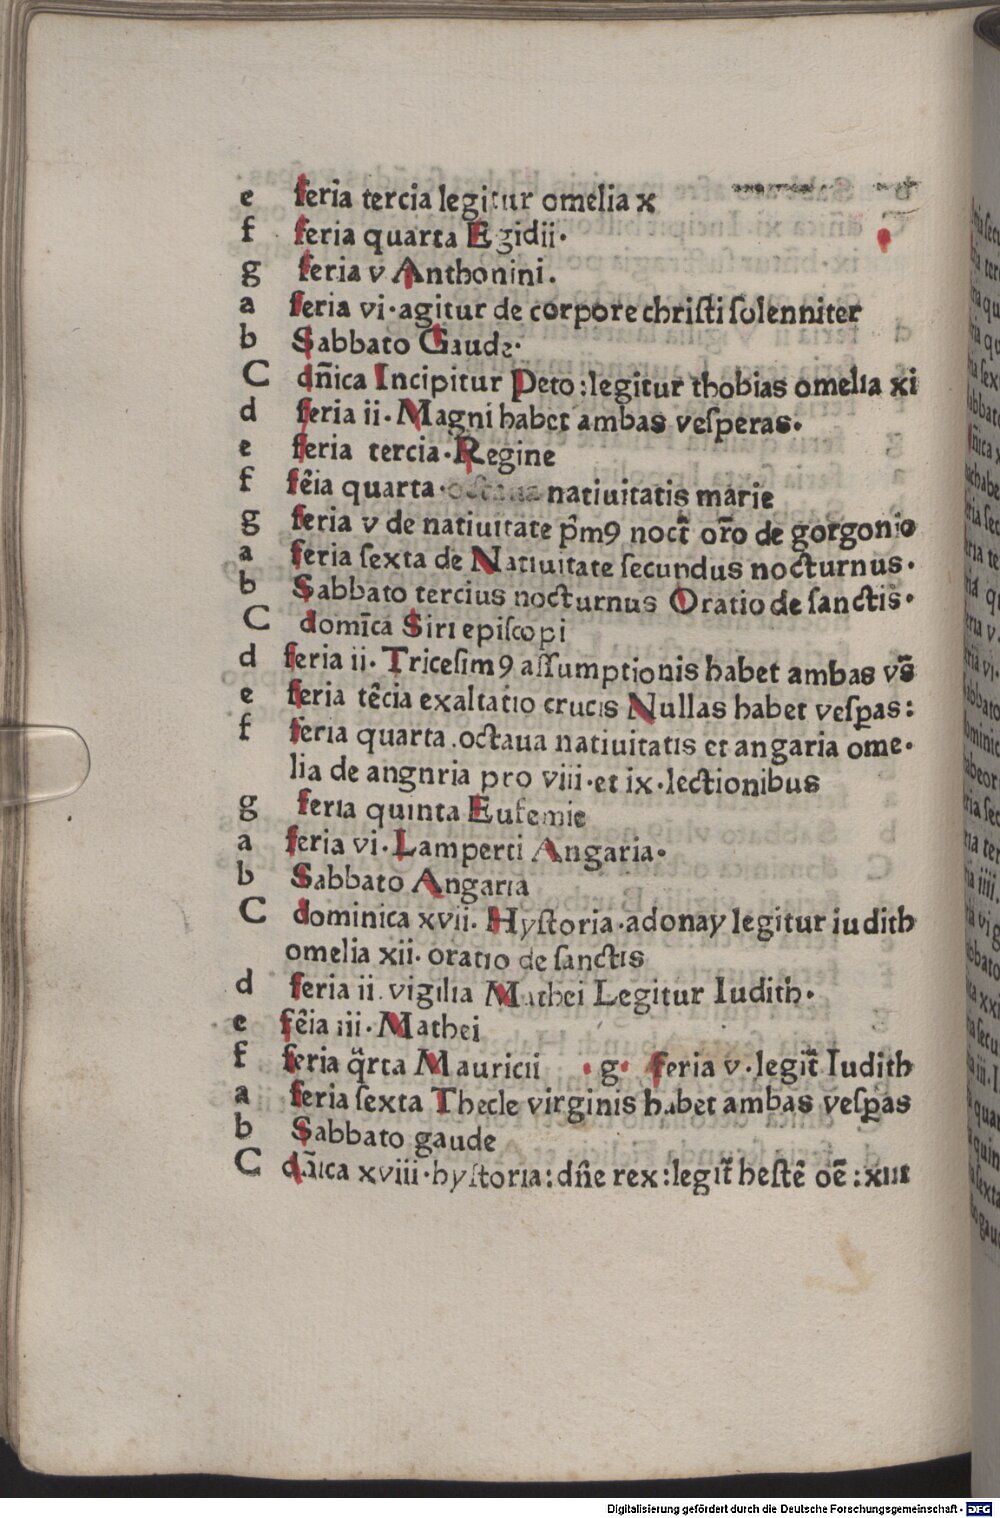 e feria tercia legitur omelia x
f feria quarta Egidii·
g feria v Anthonini.
a feria vi·agitur de corpore christi ſolenniter
b Sabbato Gaude·
C dn̄ica Incipitur Peto:legitur thobias omelia xi
d feria ii·Magni habet ambas veſperas·
e feria tercia·Regine
f fēia quarta·octaua natiuitatis marie
g feria v de natiuitate p̄m9 noct̄ or̄o de gorgonio
a feria ſexta de Natiuitate ſecundus nocturnus·
b Sabbato tercius nocturnus Oratio de ſanctis·
C domīca Siri epiſcopi
d feria ii·Triceſim9 aſſumptionis habet ambas vs̄
e feria tēcia exaltatio crucis Nullas habet veſꝑas:
f feria quarta.octaua natiuitatis et angaria ome·
lia de angnria pro viii·et ix·lectionibus
g feria quinta Eufemie
a feria vi·Lamperti Angaria·
b Sabbato Angaria
C dominica xvii·Hyſtoria·adonay legitur iudith
omelia xii·oratio de ſanctis
d feria ii.vigilia Mathei Legitur Iudith·
e fēia iii·Mathei
f feria q̄rta Mauricii ·g· feria v·legit̄ Iudith
a feria ſexta Thecle virginis habet ambas veſꝑas
b Sabbato gaude
C dn̄ica xviii·hyſtoria:dn̄e rex:legit̄ heſtē oē:xiii
Digitalisierung gefördert durch die Deutsche Forschungsgemeinschaft · DFG